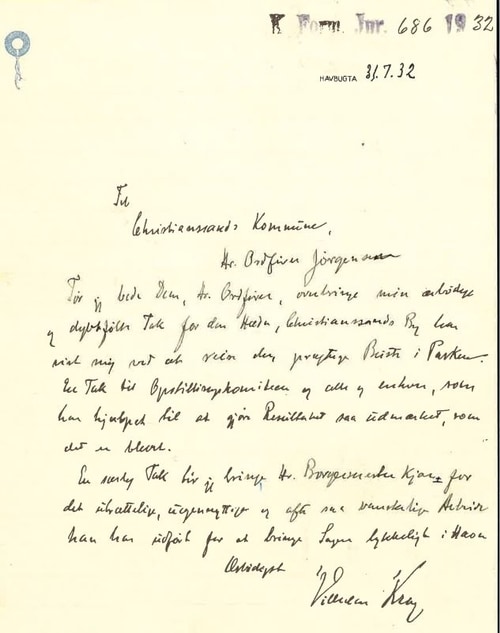 K. Form. Jnr. 686 1932
HAVBUGTA 31.7.32
Til
Christianssands Kommune,
Hr. Ordfører Jørgensen
Tør jeg bede Dem, Hr. Ordfører, overbringe min ærbødige
og dybtfølte Tak for den Hæder, Christianssands By har
vist mig ved at reise den prægtige Buste i Parken.
En Tak til Opstillingskomiteen og alle og enhver, som
har hjulpet til at gjøre Resultatet saa udmærket, som
det er blevet.
En særlig Tak bør jeg bringe Hr. Borgermester Kjær for
det utrættelige, uegennyttige og ofte saa vanskelige Arbeide
han har udført for at bringe Sagen lykkeligt i Havn
Ærbødigst
Vilhelm Krag